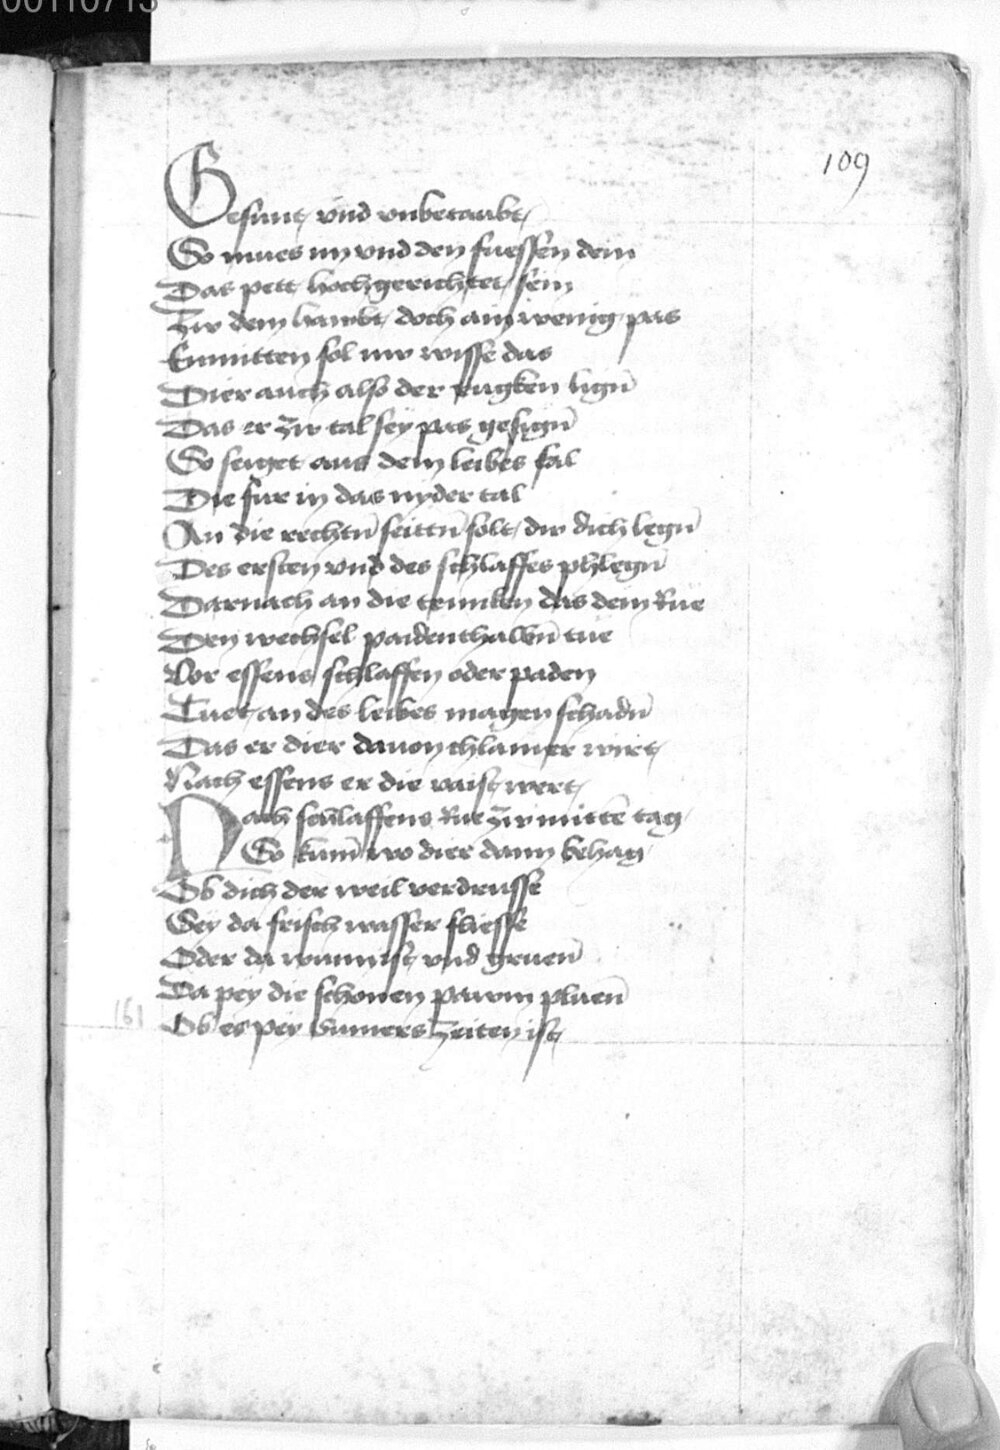 00110713
109
Gesunt vnd vnbetaubt
So mues nn vnd den fuessen dein
Das pett hochgerichtet sein
Zw dem haubt doch ain wenig pas
Enmitten sol nur wisse das
Dier auch also der rugken lign̄
Das er zw tal sey pas gesign̄
So seiget aus dem leibes sal
Die fur in das nyder tal
An die rechtn̄ seittn̄ solt dw dich legn̄
Des ersten vnd des schlaffes phlegn̄
Darnach an die tenncken das dein Rue
Den wechsel paidenthalbn̄ tue
Vor essens schlaffen oder paden
Tuet an des leibes magen schadn̄
Das er dier dauon chlainer wirt
Nach essens er die vaist wert
Nach schlaffens Rue zw mitte tag
So kum̄ wo dier dann behag
Ob dich der weil verdrusse
Sey da frisch wasser fliesse
Oder da wunn ist vnd gruen̄
Da pey die schonen pawm pluen̄
Ob es pey Sumers zeiten ist